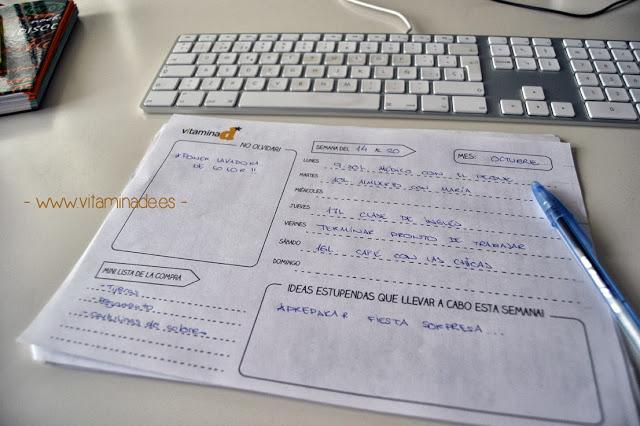 vitaminad
NO OLVIDAR!
*PONER LAVADORA
DE COLOR!!
SEMANA DEL 14 AL 20
MES: OCTUBRE
LUNES 9:30h MÉDICO CON EL PEQUE
MARTES 10h ALMUERZO CON MARÍA
MIÉRCOLES
JUEVES 17h CLASE DE INGLÉS
VIERNES TERMINAR PRONTO DE TRABAJAR
SÁBADO 16h CAFÉ CON LAS CHICAS
DOMINGO
MINI LISTA DE LA COMPRA
Tijeras
Pegamento
Cartulinas de colores
IDEAS ESTUPENDAS QUE LLEVAR A CABO ESTA SEMANA!
*PREPARAR FIESTA SORPRESA...
- www.vitaminade.es -